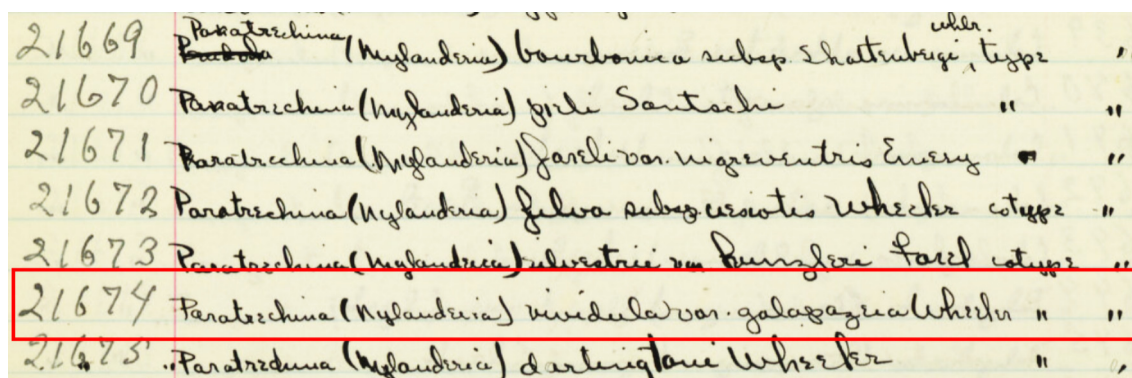 21669 Paratrechina (Nylanderia) bourbonica subsp. Skottsbergi, whlr. type "
21670 Paratrechina (Nylanderia) Santschi " "
21671 Paratrechina (Nylanderia) foreli var. nigreventris Emery " "
21672 Paratrechina (Nylanderia) fulva subsp. Wheeler cotype "
21673 Paratrechina (Nylanderia) silvestrii var Kunzleri Forel cotype "
21674 Paratrechina (Nylanderia) vividula var. galapageia Wheeler " "
21675 " Paratrechina (Nylanderia) darlingtoni Wheeler " "